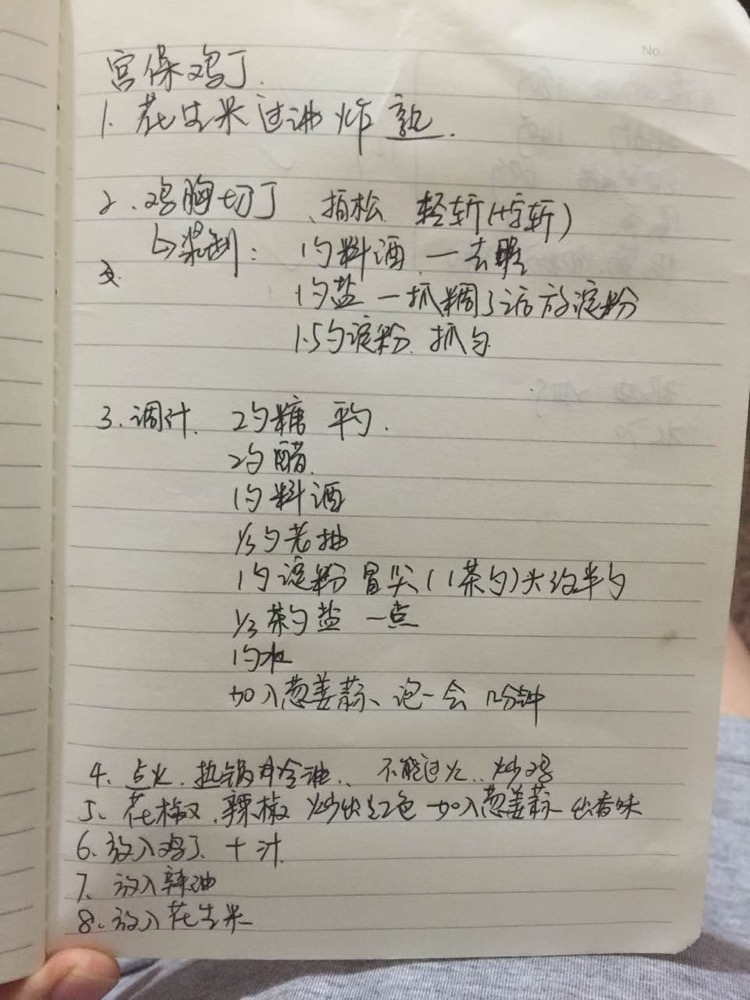 No.
宫保鸡丁.
1. 花生米过油炸熟.
2. 鸡胸切丁、拍松 轻斩(十字斩)
↳浆制: 1勺料酒 一去腥
1勺盐 一抓稠了后放淀粉
1.5勺淀粉 抓匀
3.调汁. 2勺糖 平勺.
2勺醋.
1勺料酒
1/3勺老抽
1勺淀粉 冒尖(1茶勺)大约半勺
1/3茶勺盐 一点
1勺水
加入葱姜蒜、泡一会 几分钟
4. 点火. 热锅 冷油.. 不能过火.. 炒鸡
5. 花椒、辣椒 炒出红色 加入葱姜蒜 出香味
6.放入鸡丁 + 汁.
7. 放入辣油
8.放入花生米